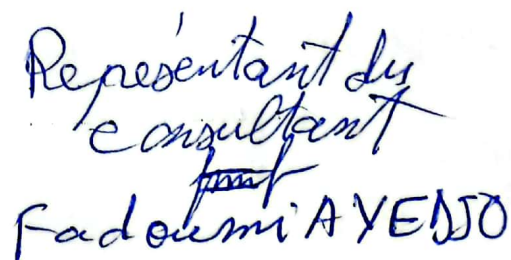 Représentant du
consultant
Fadoumi AYEDJO